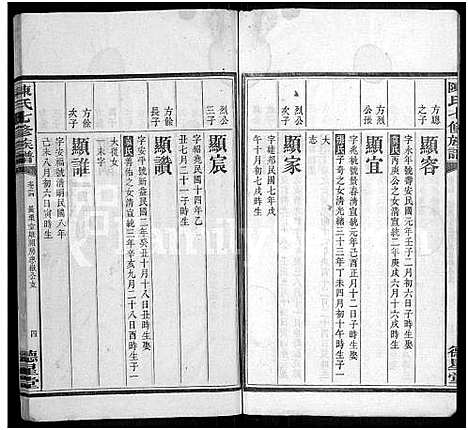 陳氏七修族譜
方總
之子
顯容
字永年號壽民國元年壬子二月初二日子時生娶
丙庚公之女清宣統二年庚戌六月十六戌時生
方公
顯宜
字文模號景春清宣統元年己酉正月十二日子時生娶
子奇之女清光緒三十三年丁未四月初十午時生子一
大志
烈公
顯家
字 民國七年戊
午十月初七戌時生
德星堂
烈公
三子
顯宸
字紹堯民國十四年乙
丑七月二十日丑時生
方餘
長子
顯讚
字安平號新益民國二年癸丑十月十八日丑時生娶
善佑之女清宣統三年辛亥九月二十八日酉時生子一
大從女
一未字
方餘
次子
顯誰
字安福號清朗民國八年
己未八月初六日寅時生
陳氏七修族譜
四
德星堂